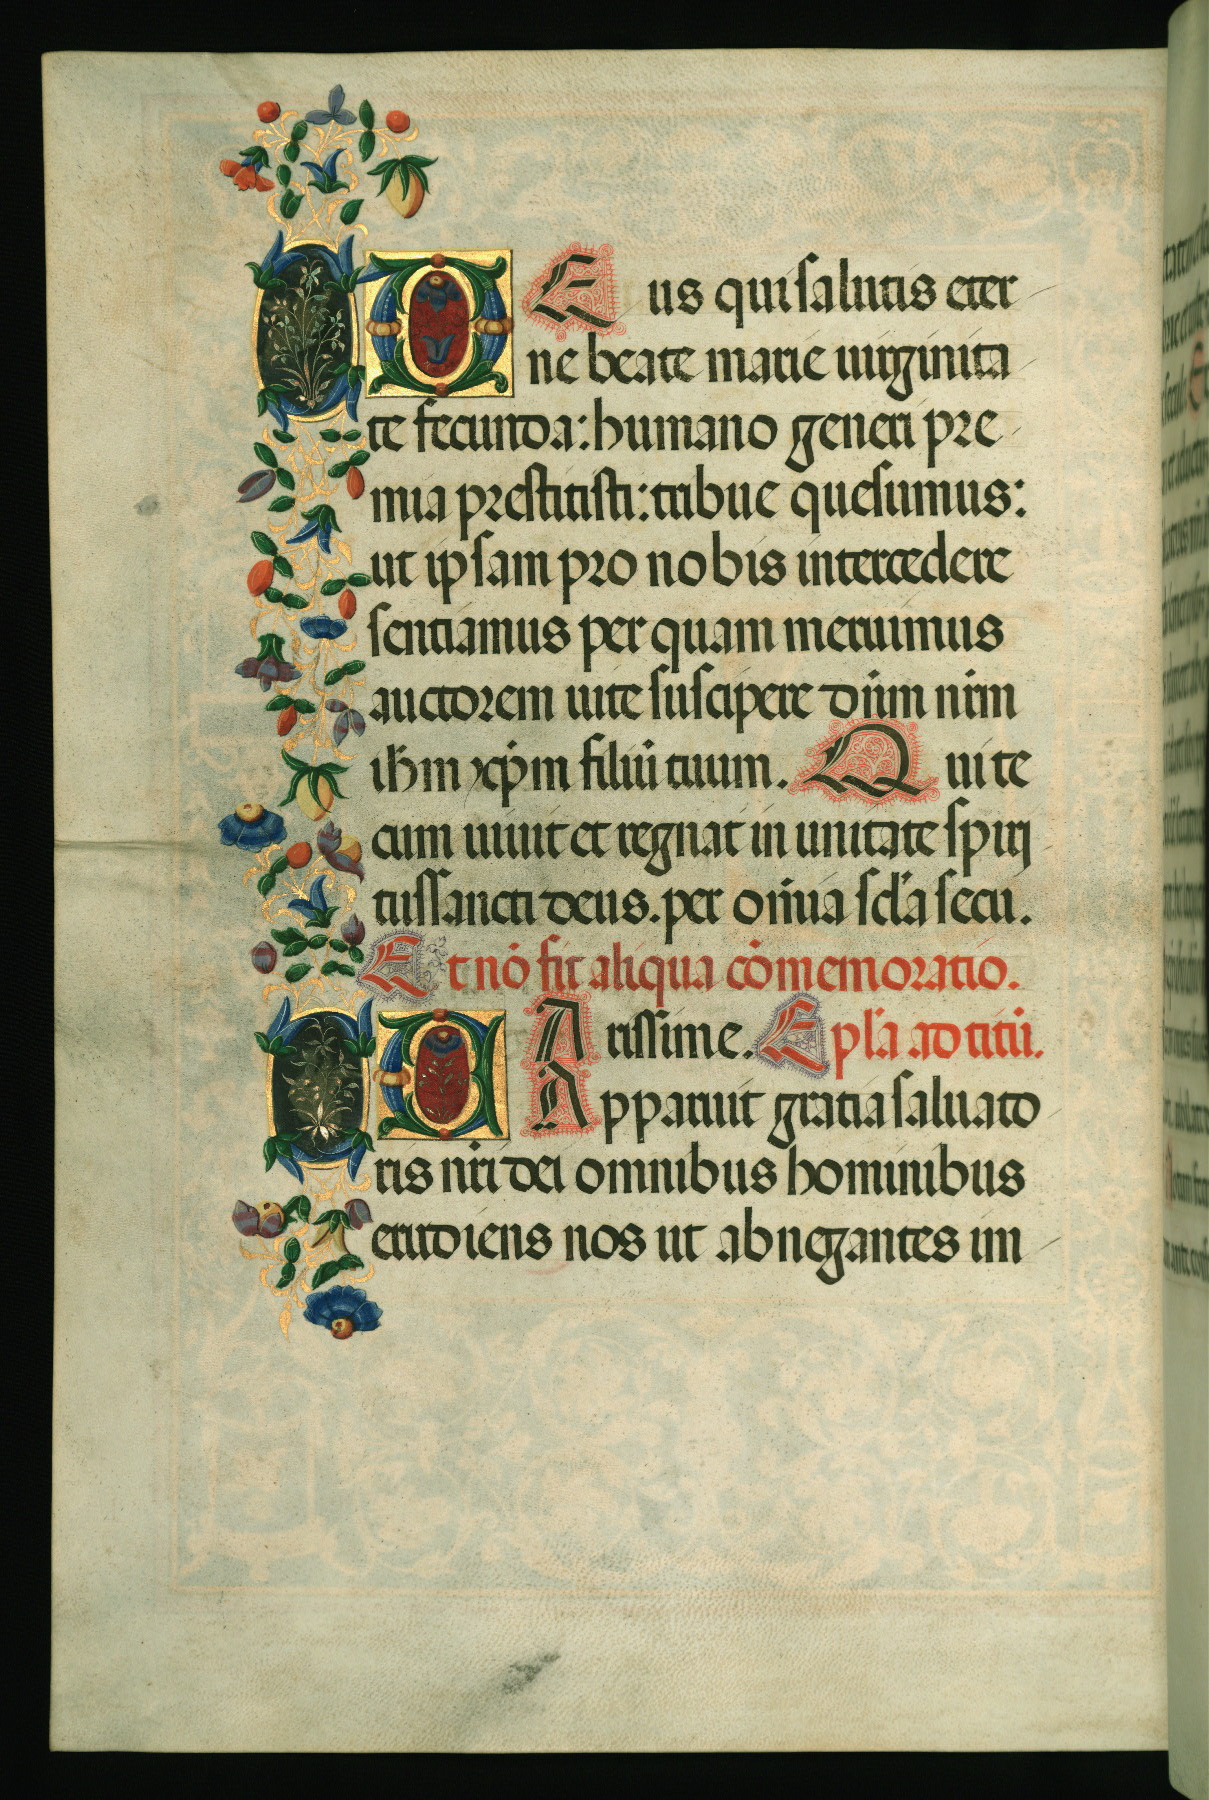 DEus qui salutis eter
ne beate marie uirginita
te fecunda: humano generi pre
mia prestitisti: tribue quesumus:
ut ipsam pro nobis intercedere
sentiamus per quam meruimus
auctorem uite suscipere dn̄m nr̄m
ih̄m xp̄m filiū tuum. Qui te
cum uiuit et regnat in unitate spiri
tussancti deus. per om̄ia scl̄a secu.
Et nō fit aliqua cōmemoratio.
KArissime. Epl̄a ad titū.
Apparuit gratia saluato
ris nr̄i dei omnibus hominibus
erudiens nos ut abnegantes im